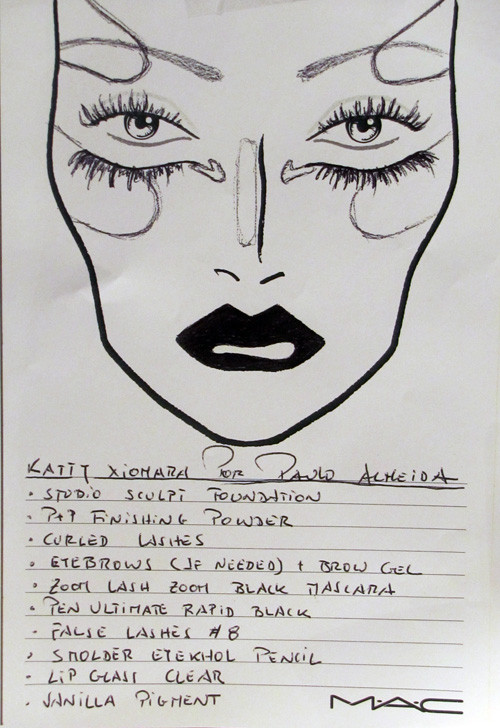 KATTY XIOMARA POR PAULO ALMEIDA
• STUDIO SCULPT FOUNDATION
• P+P FINISHING POWDER
• CURLED LASHES
• EYEBROWS (IF NEEDED) + BROW GEL
• ZOOM LASH ZOOM BLACK MASCARA
• PEN ULTIMATE RAPID BLACK
• FALSE LASHES #8
• SMOLDER EYEKHOL PENCIL
• LIP GLASS CLEAR
• VANILLA PIGMENT
M·A·C